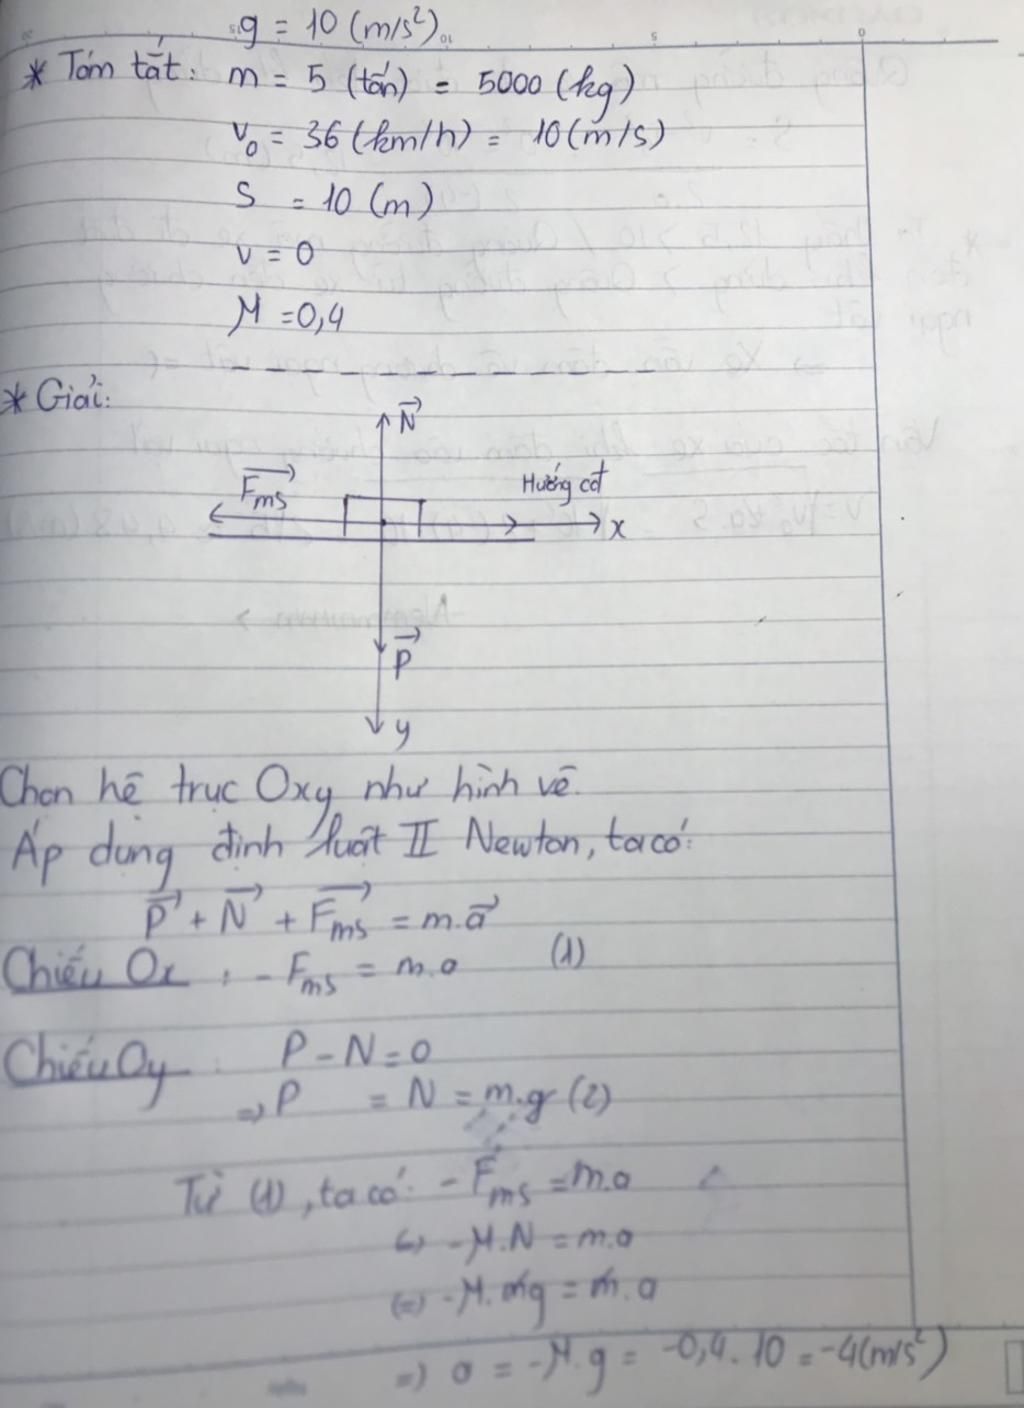 g = 10 (m/s²)
* Tóm tắt: m = 5 (tấn) = 5000 (kg)
v₀ = 36 (km/h) = 10 (m/s)
S = 10 (m)
v = 0
μ = 0,4
* Giải:
N
Fms
Hướng cđ
x
P
y
Chọn hệ trục Oxy như hình vẽ.
Áp dụng định luật II Newton, ta có:
P + N + Fms = m.a
Chiếu Ox : - Fms = m.a (1)
Chiếu Oy : P - N = 0
=> P = N = m.g (2)
Từ (1), ta có: - Fms = m.a
<=> -μ.N = m.a
<=> -μ.mg = m.a
=> a = -μ.g = -0,4.10 = -4 (m/s²)